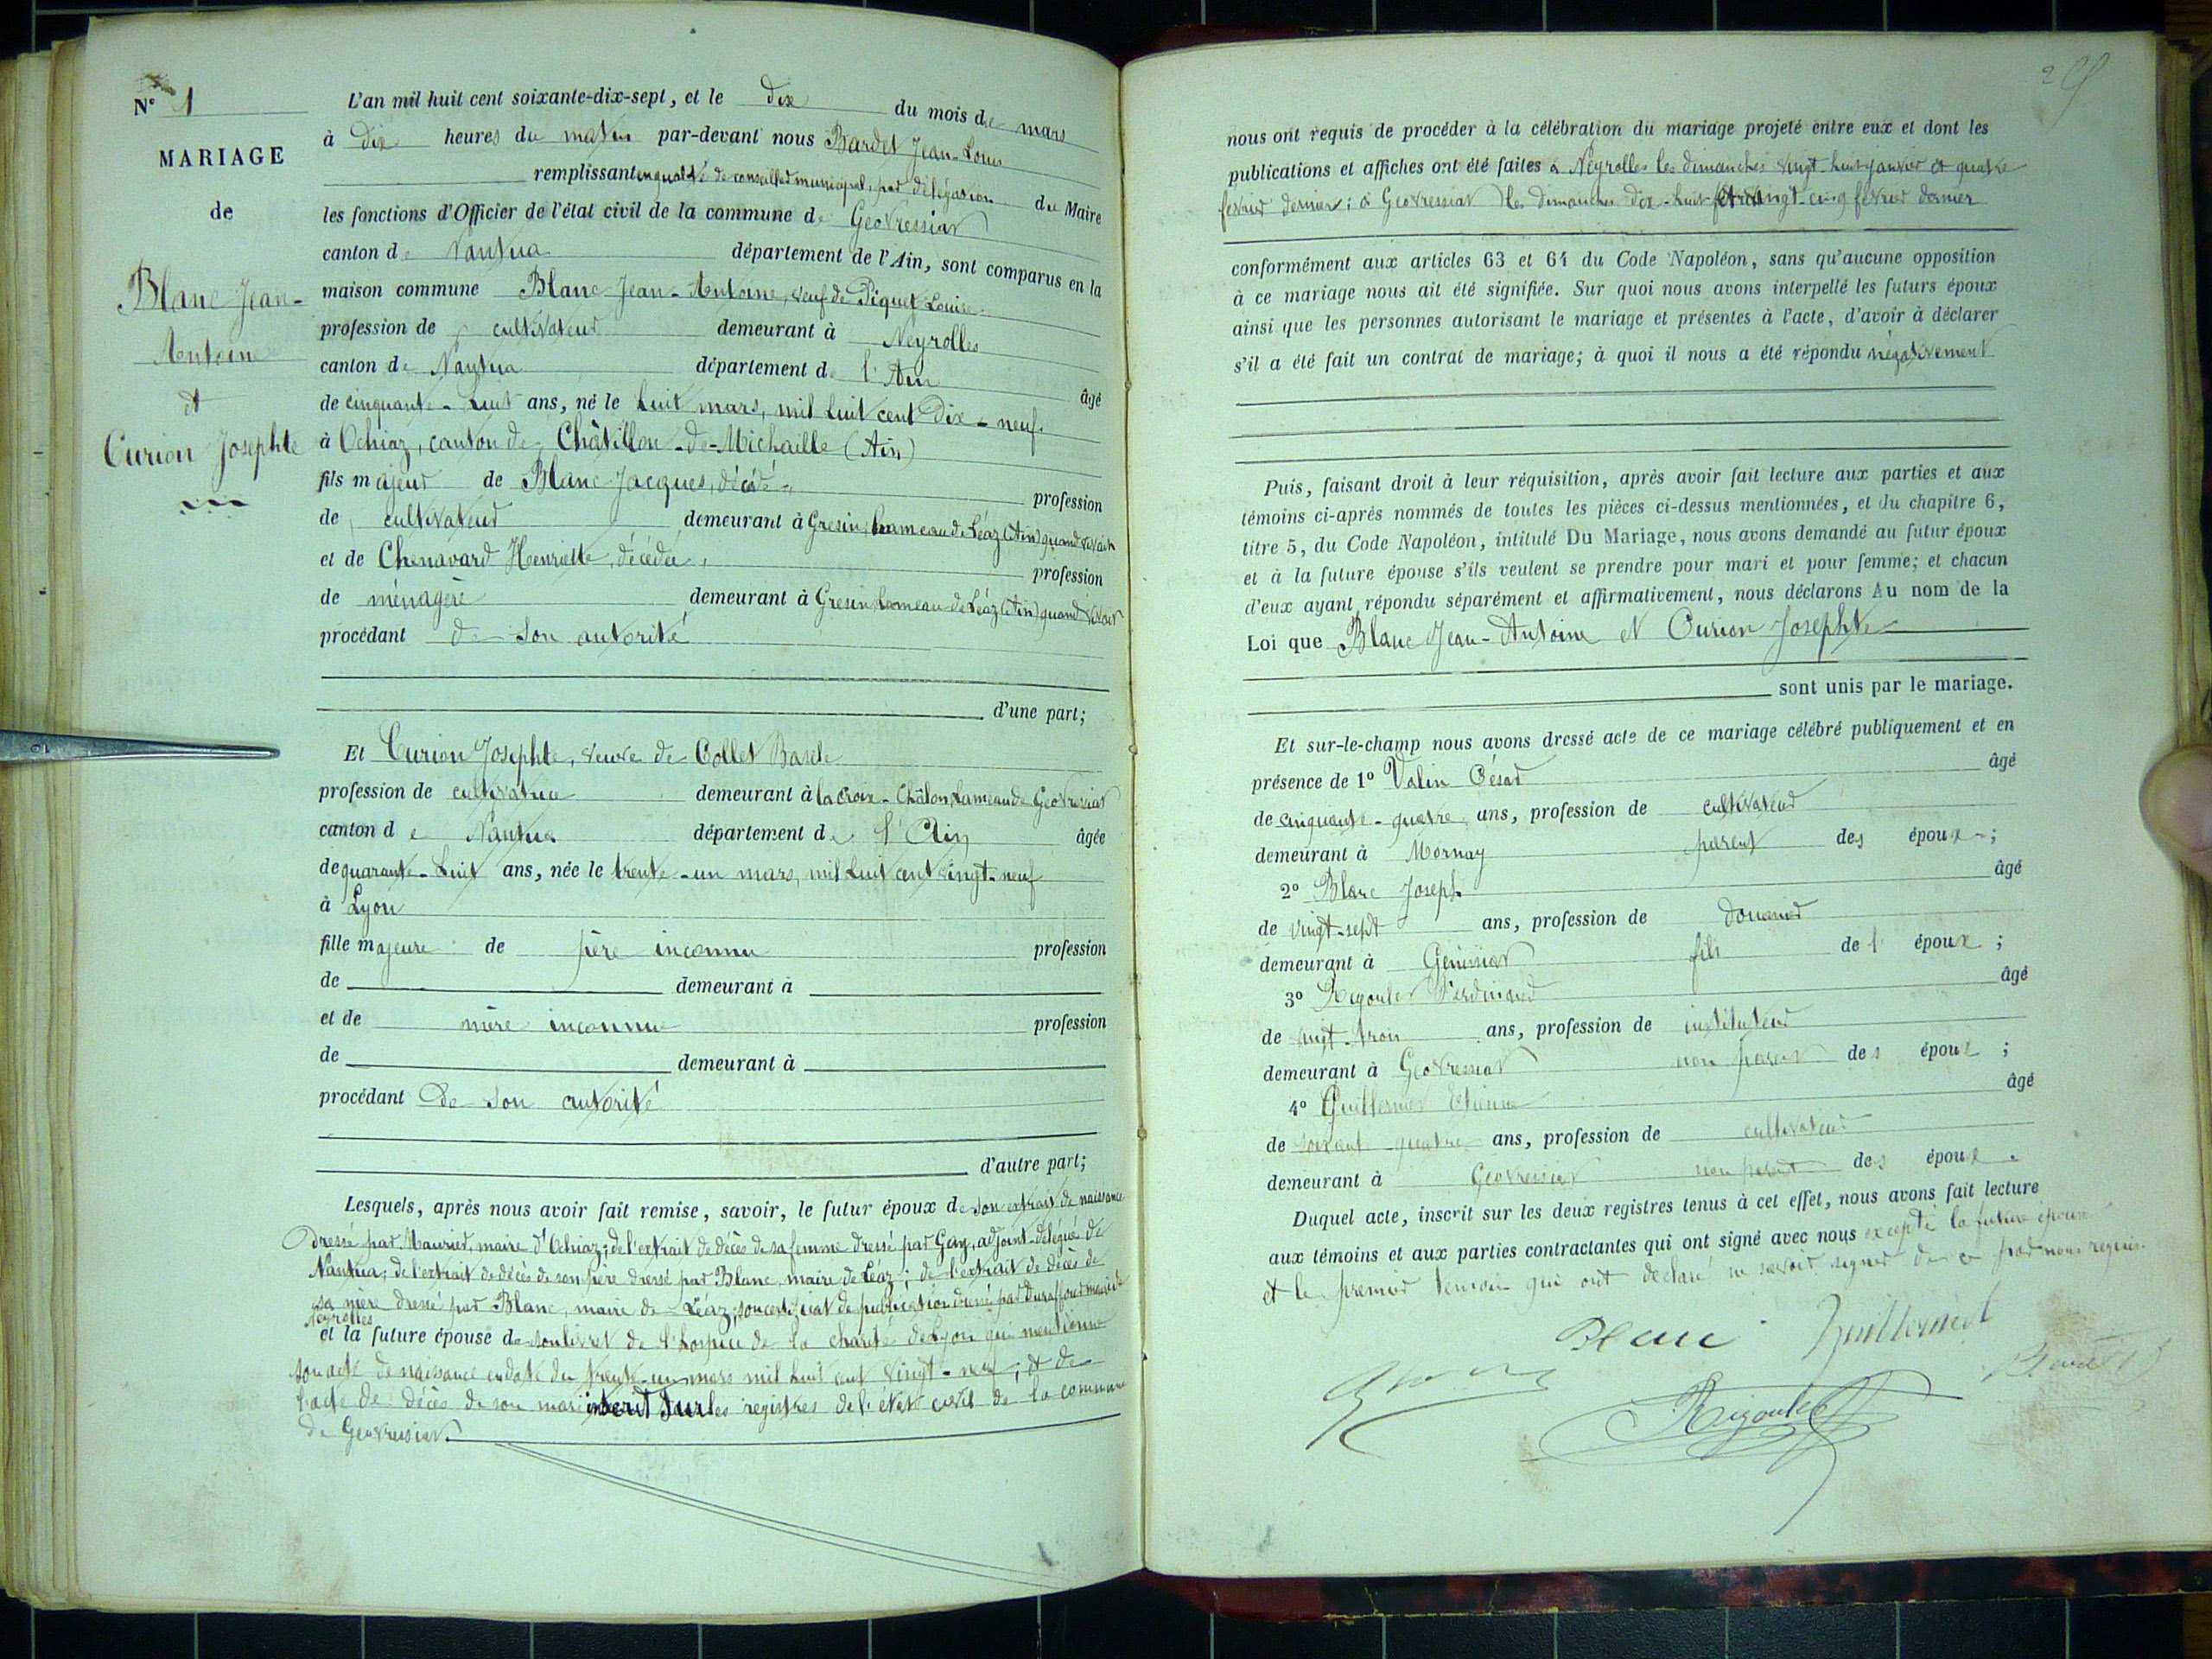 Nº 1
MARIAGE
de
Blanc Jean-
Antoine
et
Curion Josephte
L'an mil huit cent soixante-dix-sept, et le dix du mois de mars
à dix heures du matin par-devant nous Bardet Jean-Louis
remplissant en qualité de conseiller municipal, par délégation du Maire
les fonctions d'Officier de l'état civil de la commune de Geovressiat
canton de Nantua département de l'Ain, sont comparus en la
maison commune Blanc Jean-Antoine, veuf de Piquet Louise
profession de cultivateur demeurant à Neyrolles
canton de Nantua département de l'Ain âgé
de cinquante-huit ans, né le huit mars, mil huit cent dix-neuf
à Ochiaz, canton de Châtillon-de-Michaille (Ain)
fils majeur de Blanc Jacques, décédé, profession
de cultivateur demeurant à Gresin, hameau de Léaz (Ain) quand vivait
et de Chenavard Henriette, décédée, profession
de ménagère demeurant à Gresin hameau de Léaz (Ain) quand vivait
procédant de son autorité
d'une part;
Et Curion Josephte, veuve de Collet Basile
profession de cultivatrice demeurant à la Croix-Châlon, hameau de Geovressiat
canton de Nantua département de l'Ain âgée
de quarante-huit ans, née le trente-un mars, mil huit cent vingt-neuf
à Lyon
fille majeure de père inconnu profession
de demeurant à
et de mère inconnue profession
de demeurant à
procédant de son autorité
d'autre part;
Lesquels, après nous avoir fait remise, savoir, le futur époux de son extrait de naissance
dressé par Maurier, maire d'Ochiaz; de l'extrait de décès de sa femme dressé par Gay, adjoint-délégué de
Nantua; de l'extrait de décès de son père dressé par Blanc, maire de Léaz; de l'extrait de décès de
sa mère dressé par Blanc, maire de Léaz; son certificat de publication dressé par Duraffour maire de
Neyrolles
et la future épouse de son livret de l'hospice de la charité de Lyon qui mentionne
son acte de naissance en date du trente-un mars mil huit cent vingt-neuf; et de
l'acte de décès de son mari inscrit sur les registres de l'état civil de la commune
de Geovressiat.
nous ont requis de procéder à la célébration du mariage projeté entre eux et dont les
publications et affiches ont été faites à Neyrolles les dimanches vingt huit janvier et quatre
février dernier; à Geovressiat les dimanches dix-huit et vingt-cinq février dernier
conformément aux articles 63 et 64 du Code Napoléon, sans qu'aucune opposition
à ce mariage nous ait été signifiée. Sur quoi nous avons interpellé les futurs époux
ainsi que les personnes autorisant le mariage et présentes à l'acte, d'avoir à déclarer
s'il a été fait un contrat de mariage; à quoi il nous a été répondu négativement
Puis, faisant droit à leur réquisition, après avoir fait lecture aux parties et aux
témoins ci-après nommés de toutes les pièces ci-dessus mentionnées, et du chapitre 6,
titre 5, du Code Napoléon, intitulé Du Mariage, nous avons demandé au futur époux
et à la future épouse s'ils veulent se prendre pour mari et pour femme; et chacun
d'eux ayant répondu séparément et affirmativement, nous déclarons Au nom de la
Loi que Blanc Jean-Antoine et Curion Josephte
sont unis par le mariage.
Et sur-le-champ nous avons dressé acte de ce mariage célébré publiquement et en
présence de 1º Valin César âgé
de cinquante-quatre ans, profession de cultivateur
demeurant à Mornay parent des époux;
2º Blanc Joseph âgé
de vingt-sept ans, profession de douanier
demeurant à Génissiat fils de l'époux;
3º Rigoulet Ferdinand âgé
de vingt-trois ans, profession de instituteur
demeurant à Geovressiat non parent des époux;
4º Guillermet Etienne âgé
de soixante-quatre ans, profession de cultivateur
demeurant à Geovressiat non parent des époux.
Duquel acte, inscrit sur les deux registres tenus à cet effet, nous avons fait lecture
aux témoins et aux parties contractantes qui ont signé avec nous excepté la future épouse
et le premier témoin qui ont déclaré ne savoir signer de ce par nous requis.
Blanc Guillermet
Rigoulet